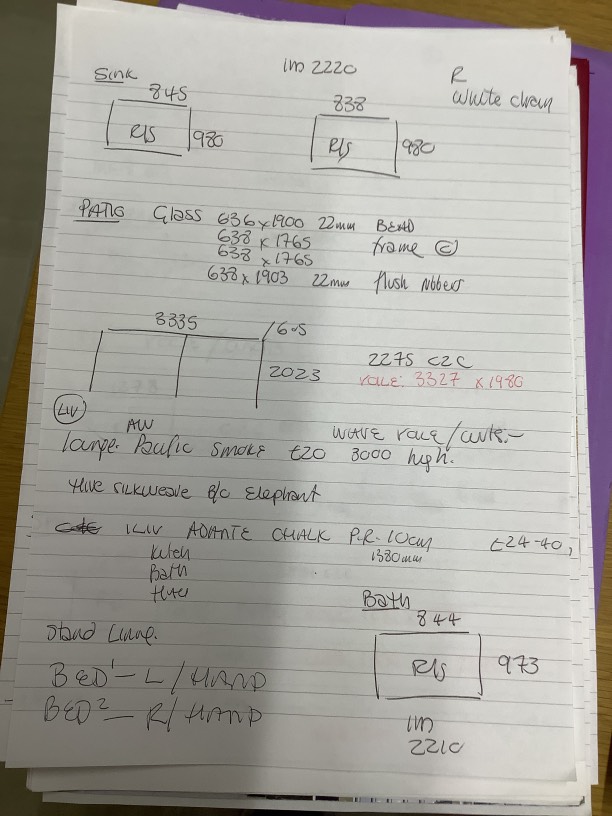 Sink
1m 2220
R
White chain
845
R/S
980
838
R/S
980
PATIO Glass 636 x 1900 22mm BEAD
638 x 1765 frame ©
638 x 1765
638 x 1903 22mm flush rubbers
3335
2023
2275 C2C
3327 x 1980
LIV
AW
WAVE
Pacific Smoke £20 3000 high.
SILKWEAVE B/O Elephant
ILIV ADANTE CHALK P.R. 10cm £24-40,
Kitch
1380mm
Bath
Bath
844
R/S
973
1m
2210
Stand
BED 1 - L/HAND
BED 2 - R/HAND